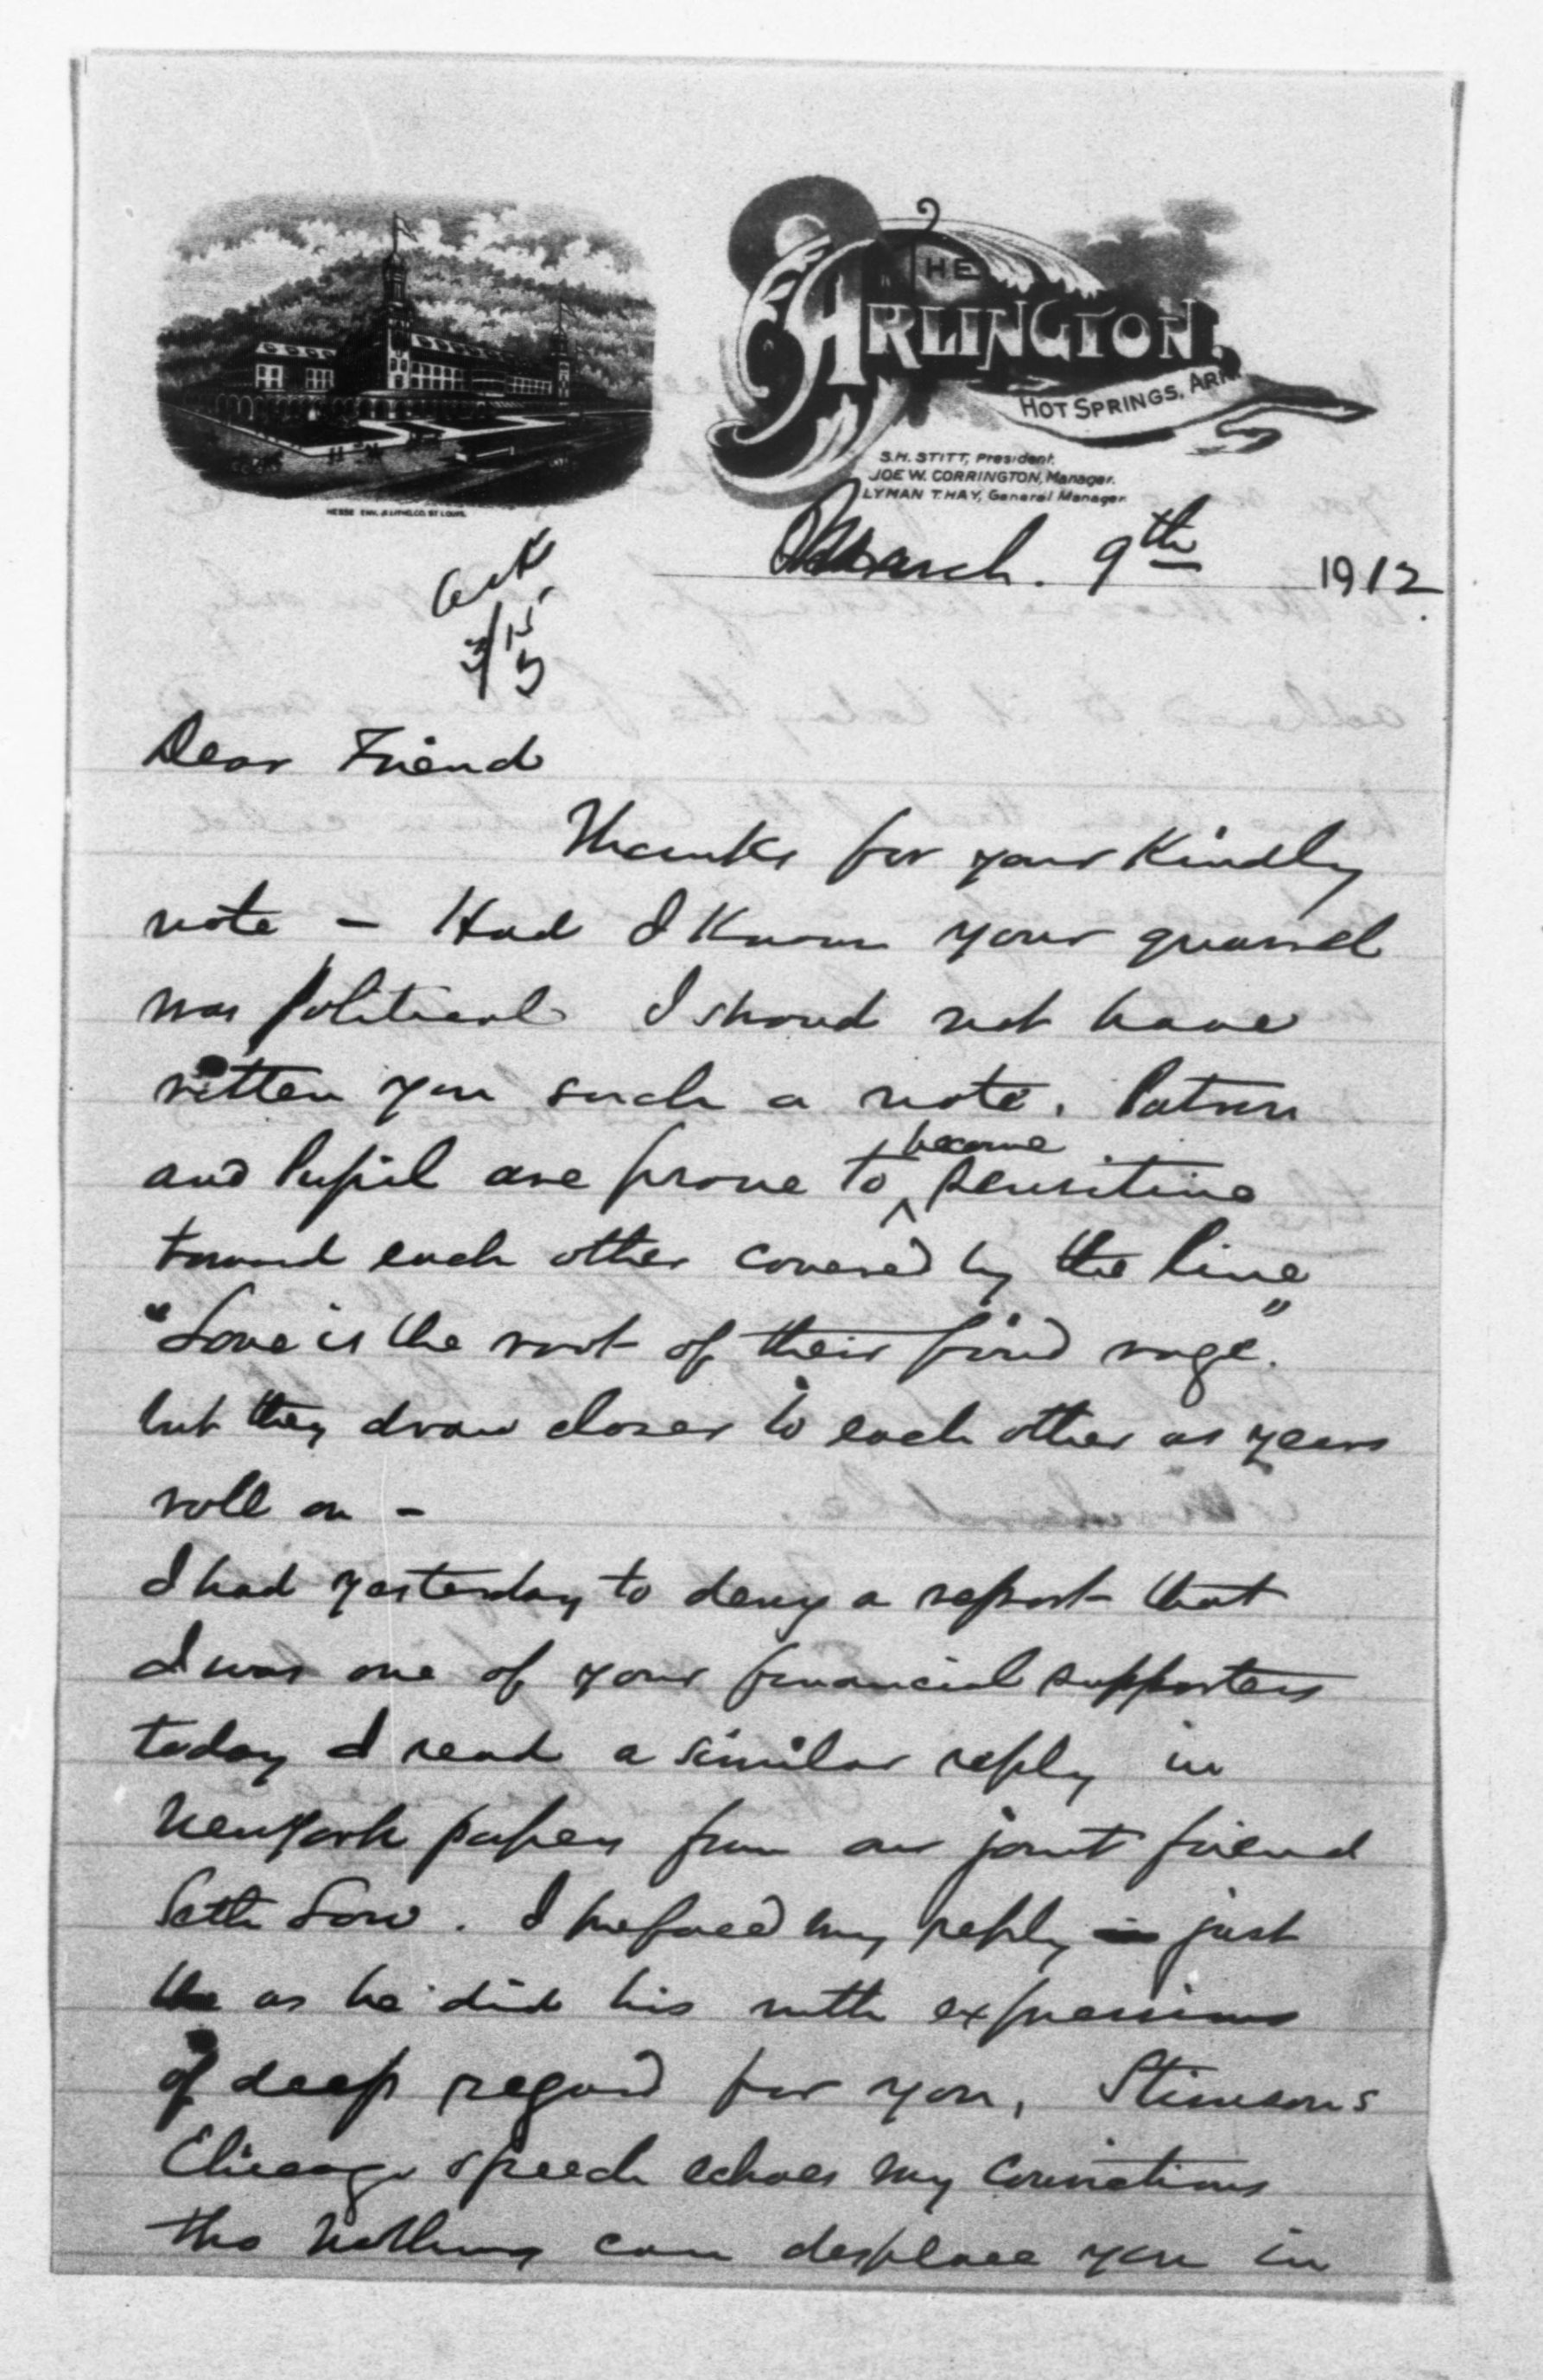 THE
ARLINGTON.
HOT SPRINGS, ARK.
S.H. STITT, President.
JOE W. CORRINGTON, Manager.
LYMAN T. HAY, General Manager.
HESSE ENV. & LITHO. CO. ST LOUIS.
March. 9th 1912.
Ack
3/15
Dear Friend
Thanks for your Kindly
note – Had I Known your quarrel
was political I shoud not have
ritten you such a note. Patron
and Pupil are prone to become sensitive
toward each other covered by the line
"Love is the root of their fond rage".
but they draw closer to each other as years
roll on –
I had yesterday to deny a report that
I was one of your financial supporters
today I read a similar reply in
New York papers from our joint friend
Seth Low. I prefaced my reply just
as he did his with expressions
of deep regard for you, Stimsons
Chicago speech echoes my convictions
tho nothing can desplace you in